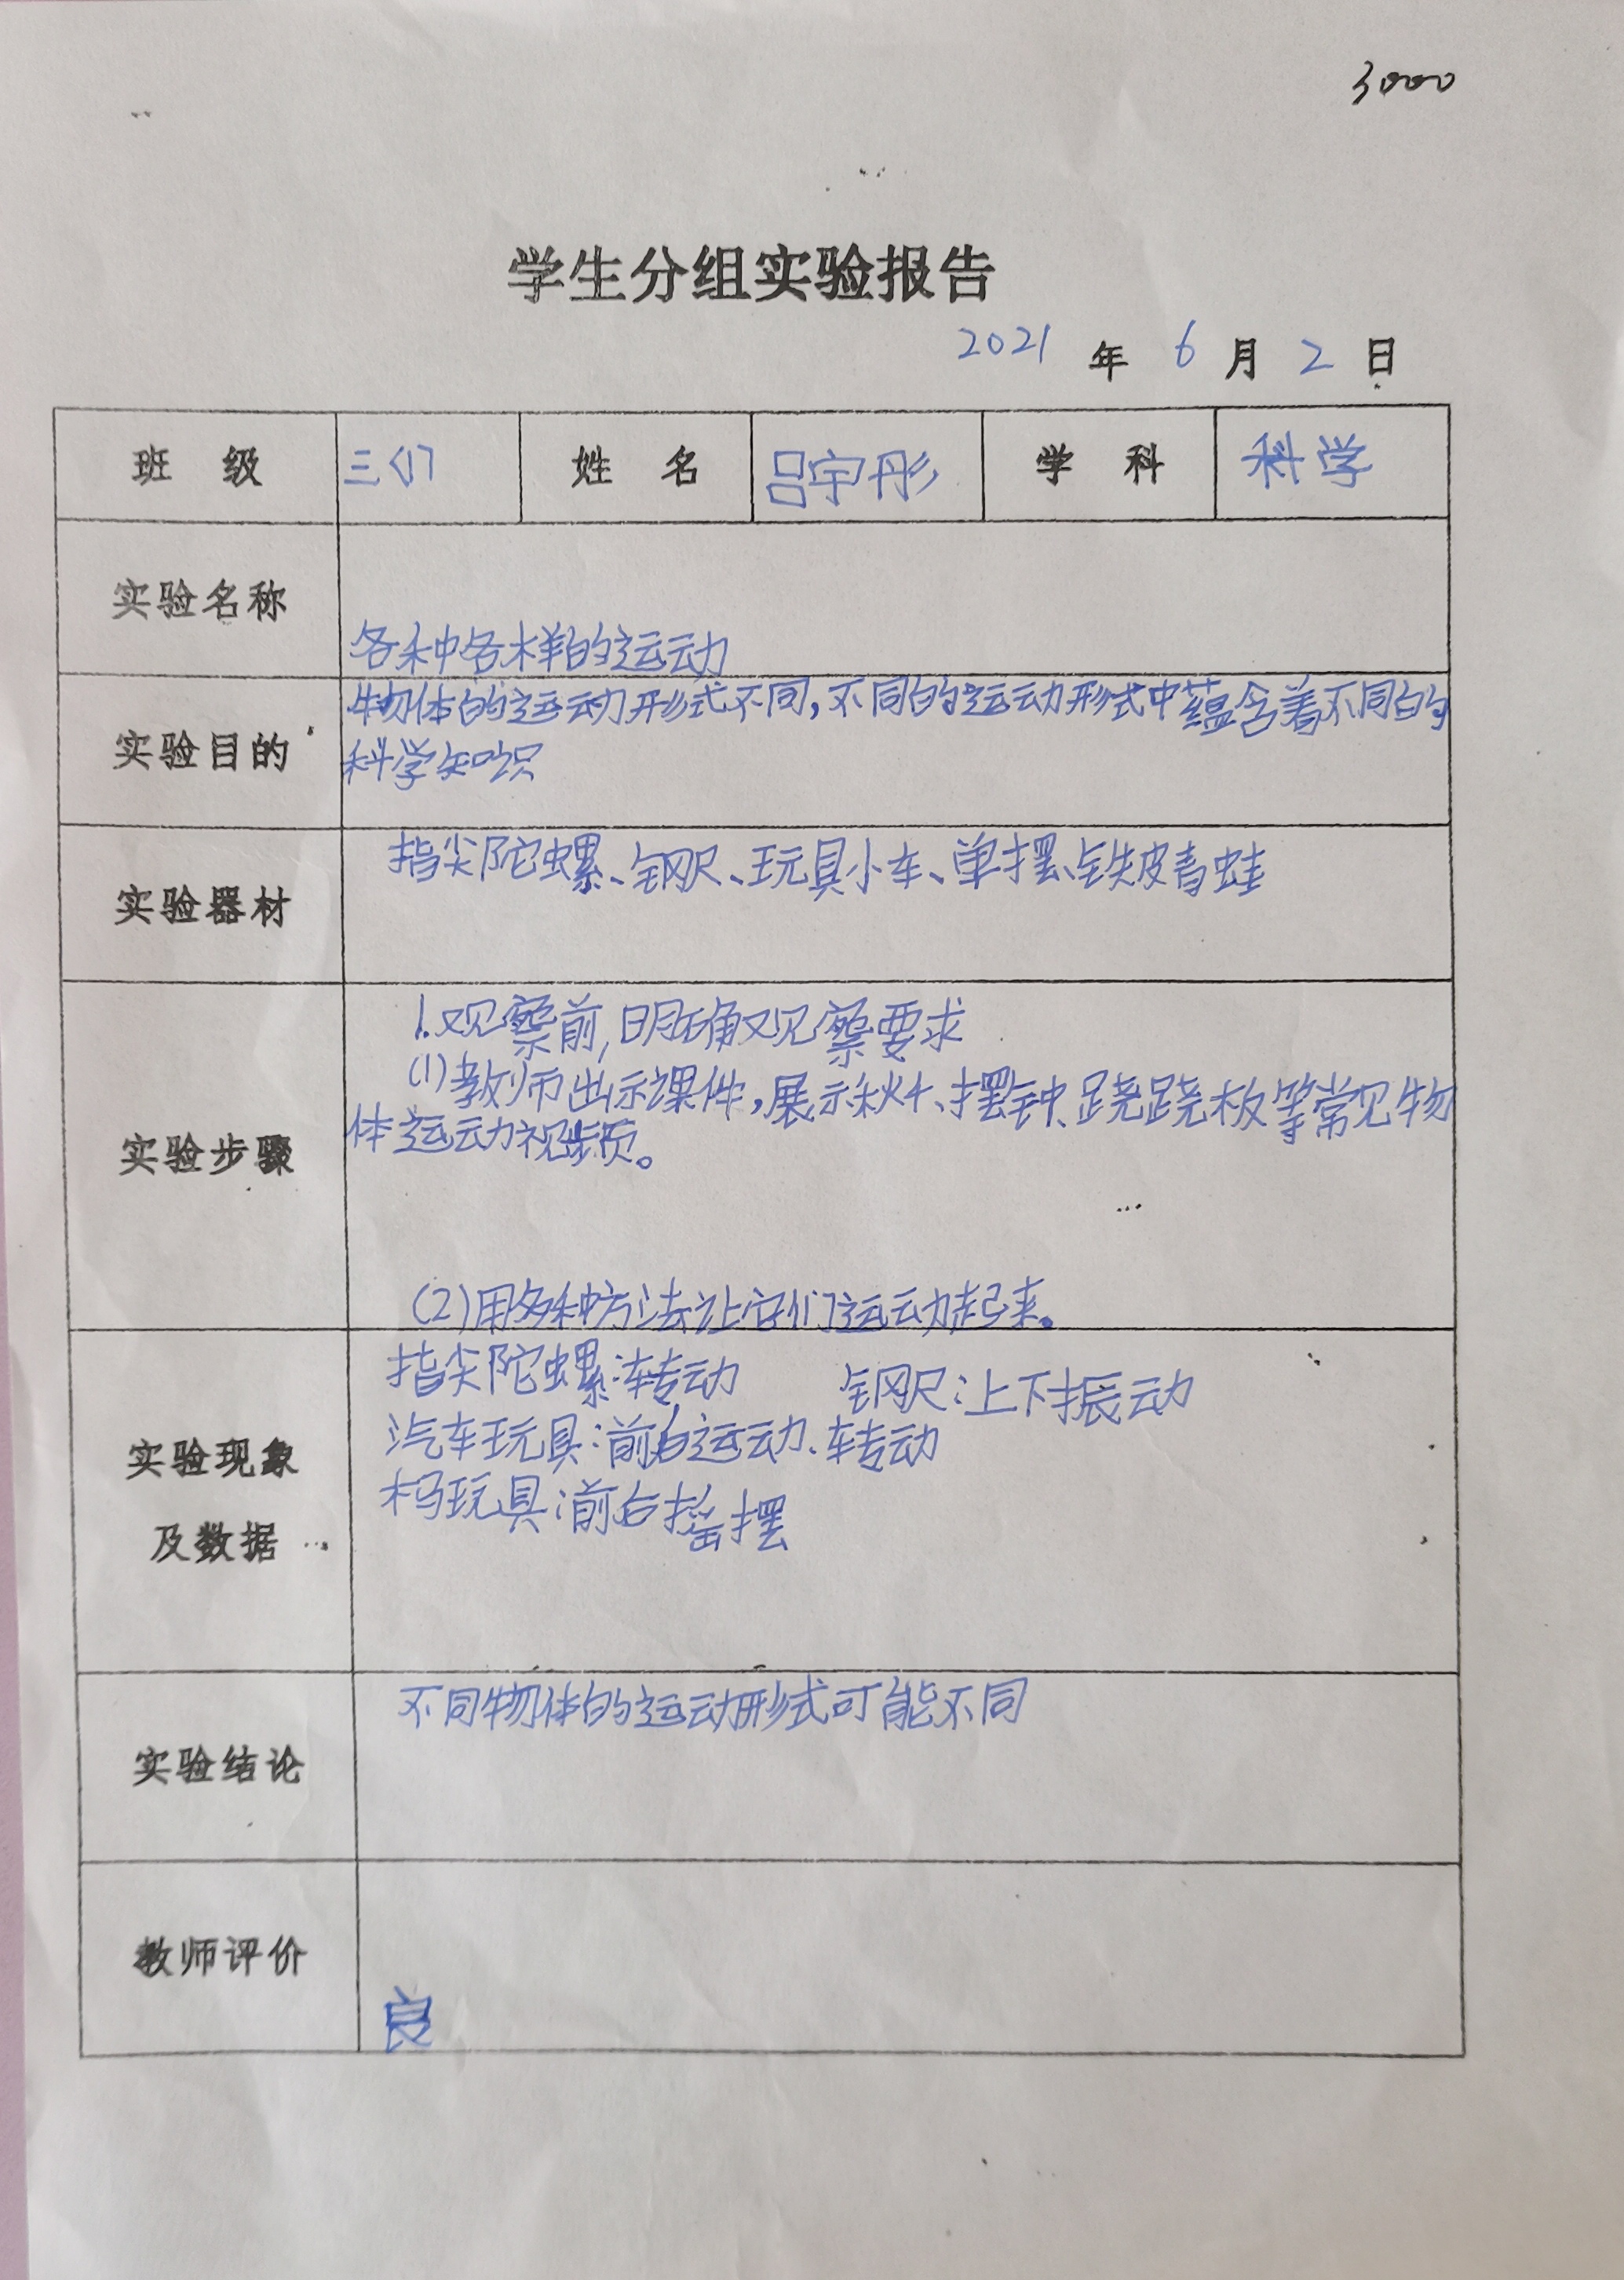 3000
学生分组实验报告
2021 年 6 月 2 日
班 级 三(1) 姓 名 吕宇彤 学 科 科学
实验名称
各种各样的运动
物体的运动形式不同,不同的运动形式中蕴含着不同的
实验目的
科学知识
指尖陀螺、钢尺、玩具小车、单摆、铁皮青蛙
实验器材
1.观察前,明确观察要求
(1)教师出示课件,展示秋千、摆钟、跷跷板等常见物
体运动视频。
实验步骤
(2)用多种方法让它们运动起来。
指尖陀螺:转动 钢尺:上下振动
汽车玩具:前后运动、转动
实验现象
木马玩具:前后摇摆
及数据
不同物体的运动形式可能不同
实验结论
教师评价
良